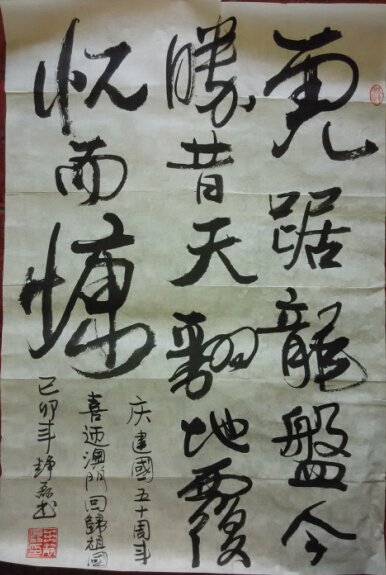 虎踞龍盤今
勝昔天翻地覆
慨而慷
庆建國五十周年
喜迎澳門回歸祖国
己卯年 书